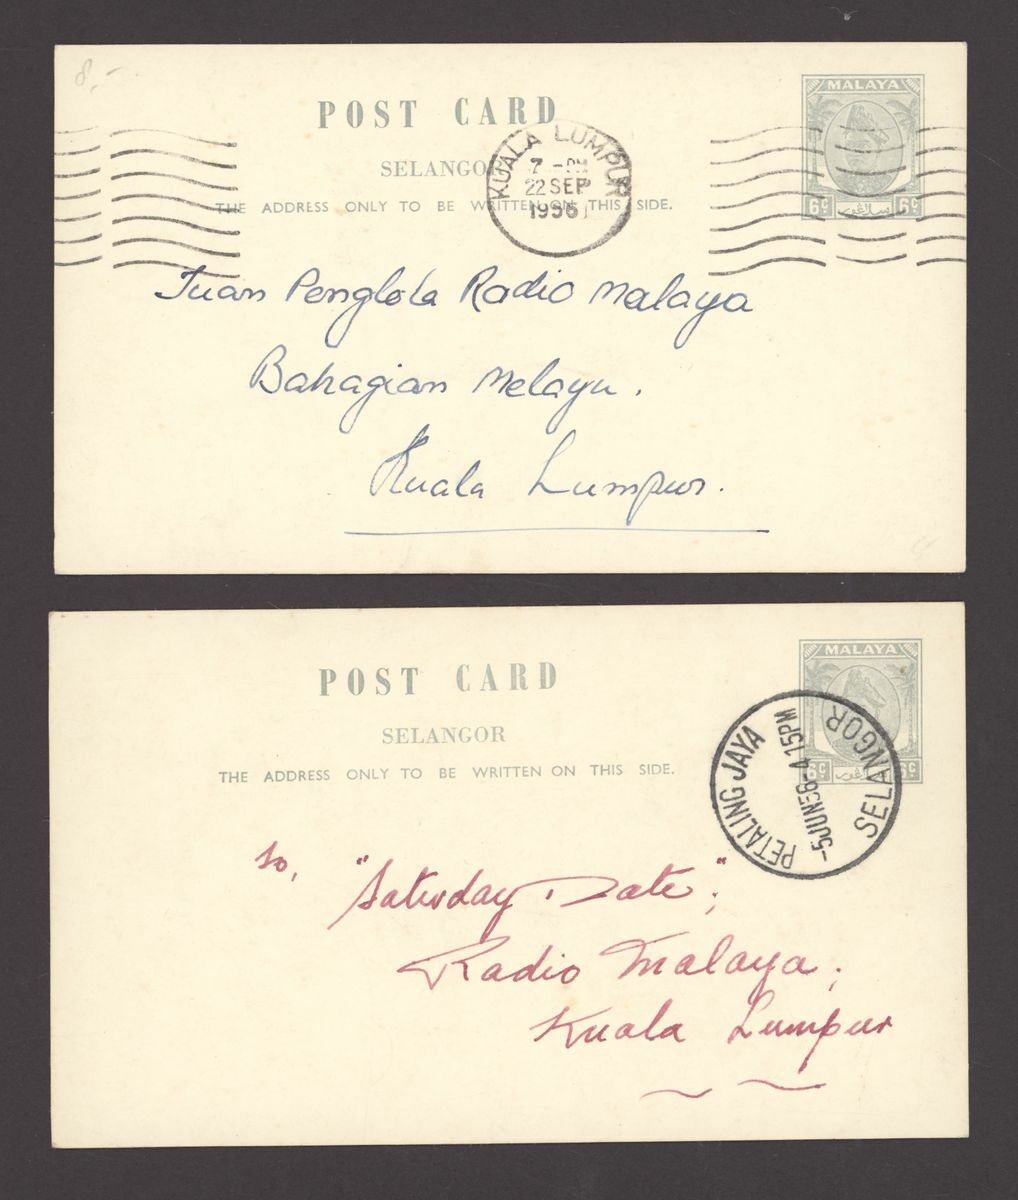 8,-
POST CARD
MALAYA
SELANGOR
KUALA LUMPUR
7 - PM
22 SEP
1956
THE ADDRESS ONLY TO BE WRITTEN ON THIS SIDE.
6c سلاڠور 6c
Tuan Penglola Radio Malaya
Bahagian Melayu.
Kuala Lumpur.
POST CARD
MALAYA
SELANGOR
THE ADDRESS ONLY TO BE WRITTEN ON THIS SIDE.
6c سلاڠور 6c
PETALING JAYA
-5JUN56-4 15PM
SELANGOR
To,
"Saturday Date",
Radio Malaya,
Kuala Lumpur